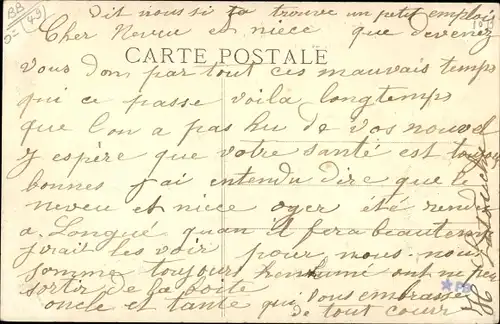 BB
49
Dit nous si tu trouve un petit emplois
Cher Neveu et niece que devenez
CARTE POSTALE
vous don par tout ces mauvais temps
qui ce passe voila longtemps
que l'on a pas hu de vos nouvel
J espère que votre santé est toujour
bonnes j'ai entendu dire que le
neveu et niece oger été rendu
a Longué quan il fera beautemp
jorait les voir pour nous nous
somme toujour henrhumé on ne peu
sortir de la boite
oncle et tante qui vous embrasse
de tout cour
PB